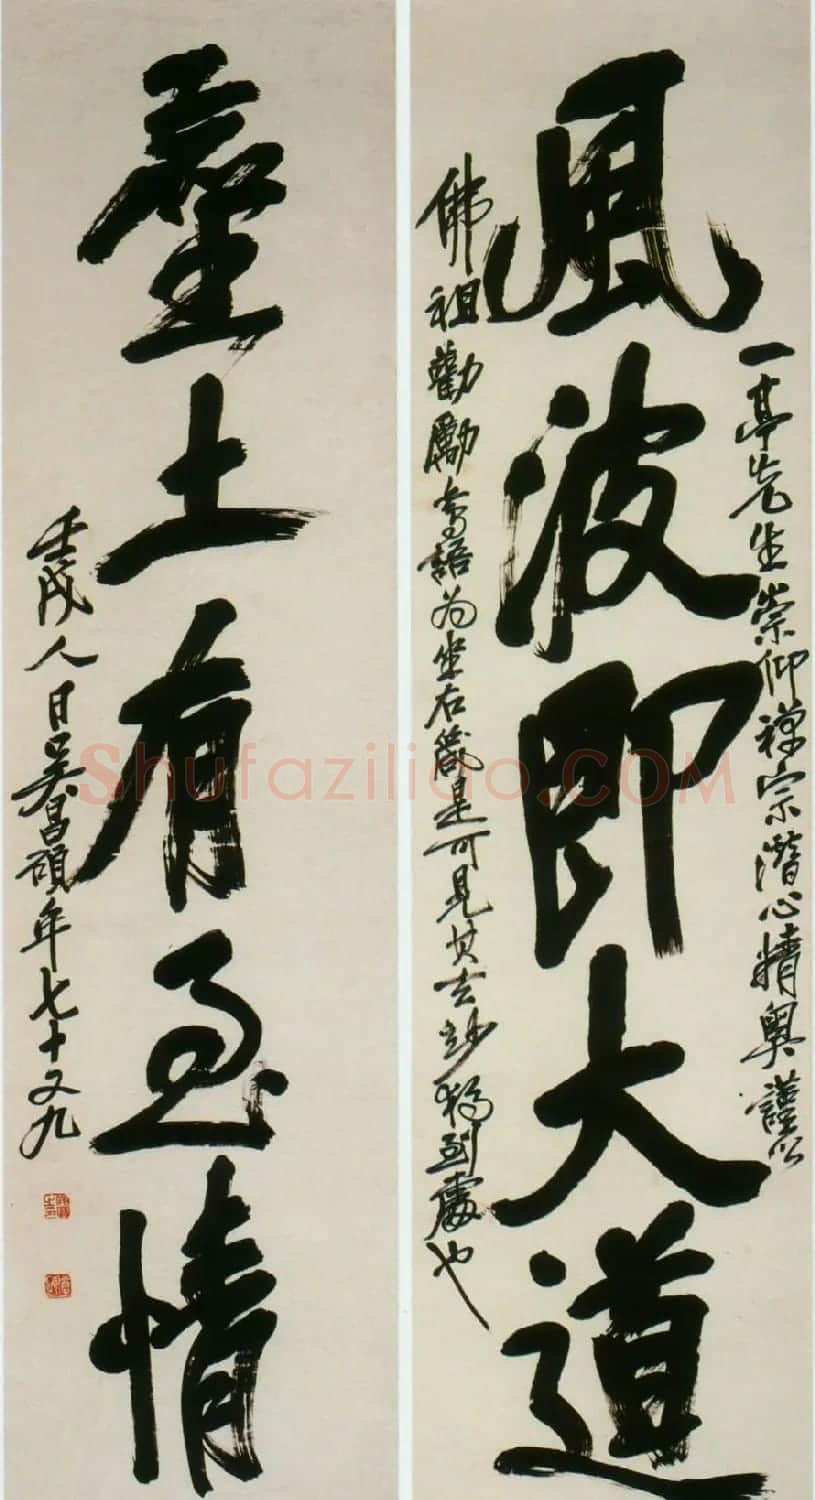 風波即大道
一亭先生崇仰禅宗潛心精奧謹以
佛祖勸勵
語為坐右箴是可見其玄妙獨到處也
土有至情
壬戌人日吳昌碩年七十又九
Shufaziliao.COM